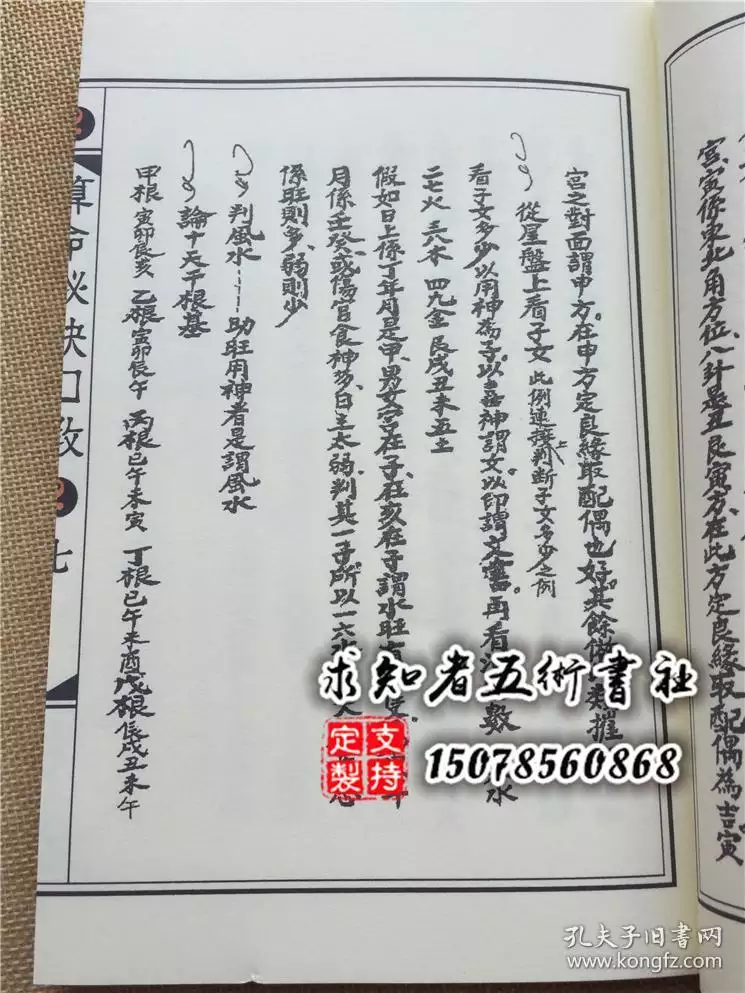 宫寅係東北角方位八計是丑艮寅方在此方定良緣取配偶為吉寅
宮之對面謂申方。在申方定良緣取配偶也好。其餘類推
從星盤上看子女 此例連接上判断子女多少之例
看子女多少以用神為子。以喜神謂女以印謂文書。再看 數 水
二七火 三八木 四九金 艮戌丑未五土
假如日上係丁年月是甲、男女宮在子、在亥在子謂水旺
月係壬癸、或傷官食神多、日主太弱。判其一子所以一六水
係旺則多、弱則少
判風水——助旺用神者是謂風水
論十天干根基
甲根寅卯辰亥 乙根寅卯辰午 丙根巳午未寅 丁根巳午未酉戊根辰戌丑未午
算命秘訣口教
七
求知者五術書社
支持定製
15078560868
孔夫子旧書网
www.kongfz.com